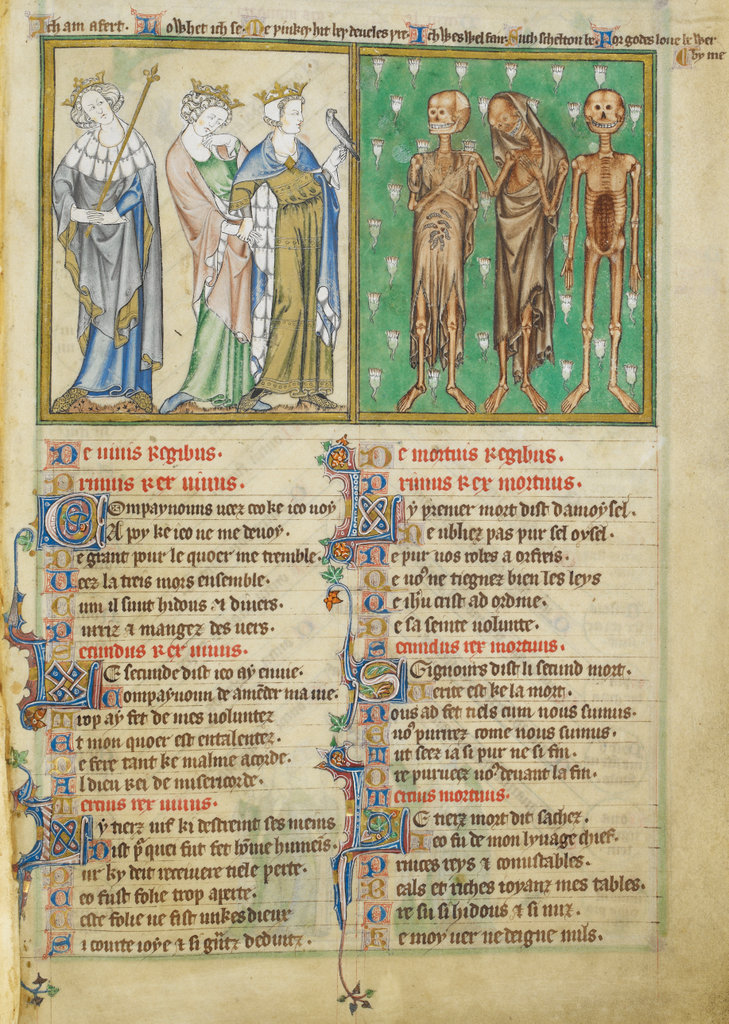 Ich am afert. Lo whet ich se. Me þinkeþ hit beþ deueles þre. Ich wes wel fair. Such scheltou be. For godes loue be wer
by me
De uiuis regibus.
Primus rex uiuus.
Compaynouns ueez ceo ke ieo uoy
A poy ke ieo ne me deuoy.
De grant pour le quoer me tremble.
Ueez la treis mors ensemble.
Cum il sunt hidous & diuers.
Purriz & mangez des uers.
Secundus rex uiuus.
Le secunde dist ieo ay enuie.
Compaynoun de amender ma uie.
Trop ay fet de mes uoluntez
Et mon quoer est entalentez.
De fere tant ke malme acorde.
Al dieu rei de misericorde.
Tercius rex uiuus.
Ly tierz uif ki destreint ses meins
Dist pur quei fut fet home humeins.
Pur ky deit receiuere tiele perte.
Ceo fust folie trop aperte.
Ceste folie ne fist unkes dieux
Si courte ioye & si gantz deduitz.
De mortuis regibus.
Primus rex mortuus.
Ly premer mort dist damoysel.
Ne ubliez pas pur sel oysel.
Ne pur uos robes a orfreis.
Qe uos ne tiegnez bien les leys
Qe ihu crist ad ordine.
De sa seinte uolunte.
Secundus rex mortuus.
Seignours dist li secund mort.
Uerite est ke la mort.
Nous ad fet tiels cum nous sumus.
Et uos purirez come nous sumus.
Tut seez ia si pur ne si fin.
Ore purueez uos deuant la fin.
Tercius mortuus.
Le tierz mort dit sachez.
Ieo fu de mon lynage chief.
Princes reys & conustables.
Beals et riches ioyanz mes tables.
Ore su si hidous & si nuz.
Ke moy uer ne deigne nuls.